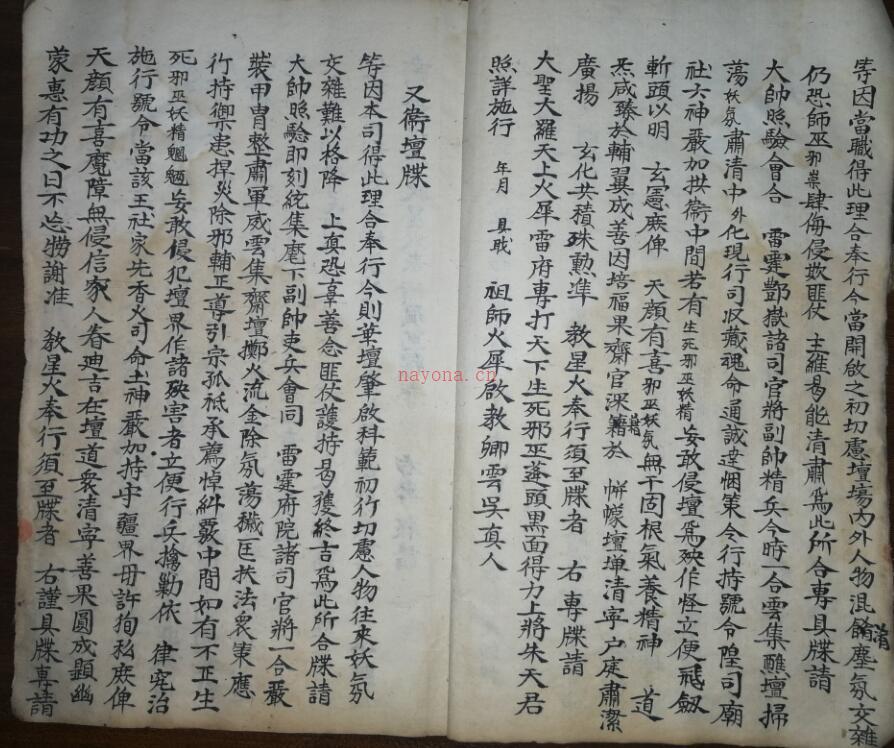 等因當職得此理合奉行今當開啟之初切慮壇塲内外人物混餚淆塵氛交雜
仍恐師巫邪祟肆侮侵欺匪仗 主維曷能清肅爲此所合專具牒請
大帥照驗會合 雷霆酆嶽諸司官將副帥精兵今時一合雲集醮壇掃
蕩妖氛肅清中外化現行司收藏魂命通誠達悃策令行持號令隍司廟
社六神嚴加拱衛中間若有生死邪巫妖精妄敢侵壇爲殃作怪立便飛劔
斬頭以明 玄憲庶俾 天顔有喜邪巫妖氛無干固根氣養精神 道
炁咸臻於輔翼成善因培福果齋官深籍藉於 帡幪壇墠清寧户庭肅潔
廣揚 玄化共積殊勳凖 教星火奉行須至牒者 右專牒請
大聖大羅天上火犀雷府專打天下生死邪巫蓬頭黑面得力上將朱天君
照詳施行 年月 具職 祖師火犀啟教卿雲吴真人
又衛壇牒
等因本司得此理合奉行今則華壇肇啟科範初行切慮人物往來妖氛
交雜難以格降 上真恐辜善念匪仗護持曷獲終吉爲此所合牒請
大帥照驗即刻統集麾下副帥吏兵會同 雷霆府院諸司官將一合嚴
裝甲冑整肅軍威雲集齋壇擲火流金除氛蕩穢匡扶法衆策應
行持禦患捍災除邪輔正導引宗孤祗承薦悼糾察中間如有不正生
死邪巫妖精魍魎妄敢侵犯壇界作諸殃害者立便行兵擒勦依 律究治
施行號令當該王社家先香火司命土神嚴加持守疆界毋許狥私庶俾
天顔有喜魔障無侵信家人眷廸吉在壇道衆清寧善果圓成顕幽
蒙惠有功之日不忘犒謝准 教星火奉行須至牒者 右謹具牒專請
nayona.cn